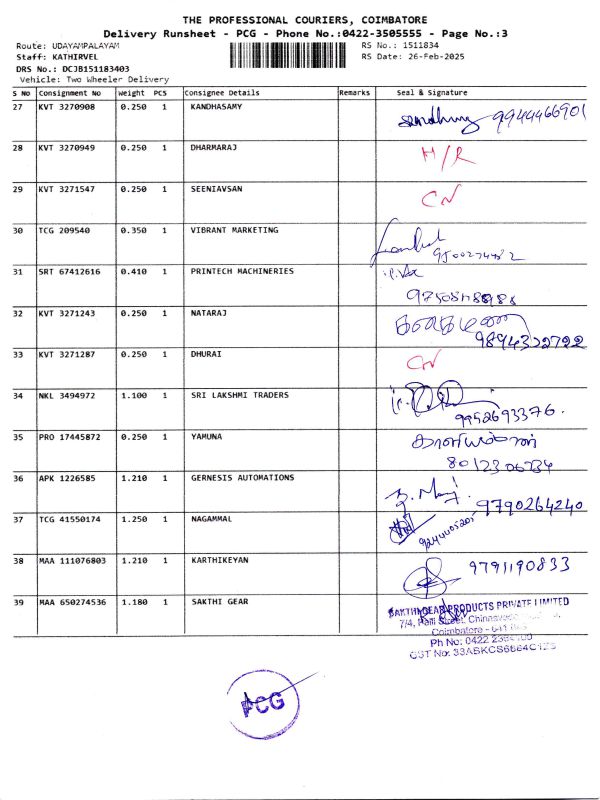 THE PROFESSIONAL COURIERS, COIMBATORE
Delivery Runsheet - PCG - Phone No.:0422-3505555 - Page No.:3
Route: UDAYAMPALAYAM
RS No.: 1511834
Staff: KATHIRVEL
RS Date: 26-Feb-2025
DRS No.: DCJB151183403
Vehicle: Two Wheeler Delivery
S No Consignment No Weight PCS Consignee Details Remarks Seal & Signature
27 KVT 3270908 0.250 1 KANDHASAMY 9944466901
28 KVT 3270949 0.250 1 DHARMARAJ H/R
29 KVT 3271547 0.250 1 SEENIAVSAN CN
30 TCG 209540 0.350 1 VIBRANT MARKETING
31 SRT 67412616 0.410 1 PRINTECH MACHINERIES
32 KVT 3271243 0.250 1 NATARAJ
9894322722
33 KVT 3271287 0.250 1 DHURAI CN
34 NKL 3494972 1.100 1 SRI LAKSHMI TRADERS
9952693376.
35 PRO 17445872 0.250 1 YAMUNA
8012306734
36 APK 1226585 1.210 1 GERNESIS AUTOMATIONS
9790264240
37 TCG 41550174 1.250 1 NAGAMMAL
38 MAA 111076803 1.210 1 KARTHIKEYAN 9791190833
39 MAA 650274536 1.180 1 SAKTHI GEAR SAKTHI GEAR PRODUCTS PRIVATE LIMITED
7/4, Street,
Coimbatore -
Ph No: 0422
GST No:
PCG